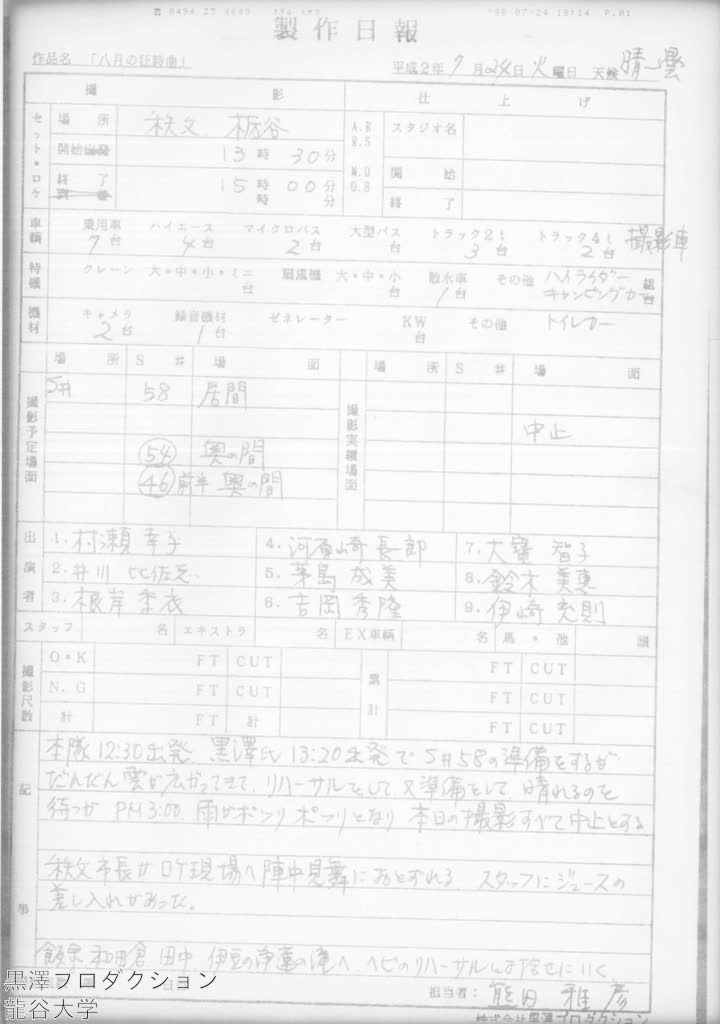 ☎ 0494 23 6649 '90-07-24 18:14 P.01
製作日報
作品名 「八月の狂詩曲」
平成2年 7月 24日 火曜日 天候 晴一曇
撮影 仕上げ
セット・ロケ
場所 秩父 栃谷
開始出発 13時 30分
終了 15時 00分
時 分
A.R R.S スタジオ名
M.D D.B 開始
終了
車輌 乗用車 7台 ハイエース 4台 マイクロバス 2台 大型バス 台 トラック2t 3台 トラック4t 2台 撮影車
特機 クレーン 大・中・小・ミニ 台 扇風機 大・中・小 台 散水車 1台 その他 ハイライダー キャンピングカー 組台
機材 キャメラ 2台 録音機材 1台 ゼネレーター KW 台 その他 トイレカー
場所 S# 場面 場所 S# 場面
撮影予定場面
S# 58 居間
54 奥の間
46 前半 奥の間
撮影実績場面
中止
出演者
1. 村瀬 幸子 4. 河原崎 長一郎 7. 大寶 智子
2. 井川 比佐志 5. 茅島 成美 8. 鈴木 美恵
3. 根岸 季衣 6. 吉岡 秀隆 9. 伊崎 充則
スタッフ 名 エキストラ 名 EX車輌 名 馬・他 頭
撮影尺数
O・K FT CUT 累計 FT CUT
N.G FT CUT FT CUT
計 FT 計 FT CUT
記事
本隊12:30出発 黒澤氏13:20出発でS#58の準備をするが
だんだん雲が広がってきて、リハーサルをして、又準備をして 晴れるのを
待つが PM3:00 雨がポツリ ポツリとなり 本日の撮影すべて中止とする
秩父市長がロケ現場へ陣中見舞におとずれる、スタッフにジュースの
差し入れがあった。
和田倉 田中 伊豆の浄蓮の滝へ ヘビのリハーサル
担当者： 熊田 雅彦
株式会社黒澤プロダクション
黒澤プロダクション
龍谷大学